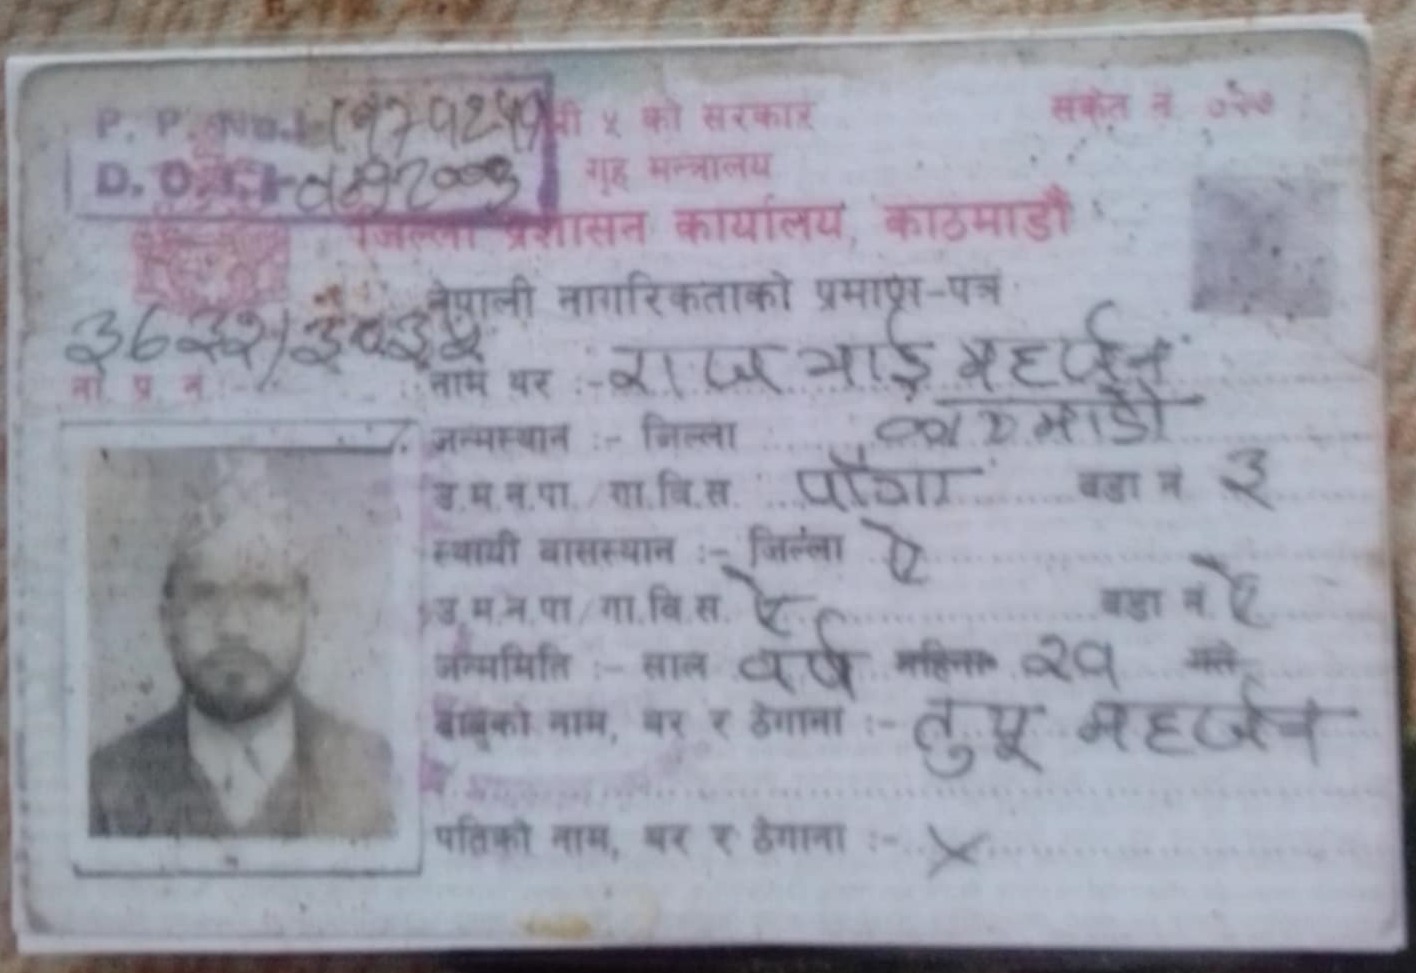 P. P. No.
श्री ५ को सरकार
संकेत नं. ०२७
D. O. I.
गृह मन्त्रालय
जिल्ला प्रशासन कार्यालय, काठमाडौं
नेपाली नागरिकताको प्रमाण-पत्र
ना प्र नं :-
नाम थर :- राज भाई महर्जन
जन्मस्थान :- जिल्ला काठमाडौं
उ.म.न.पा./गा.वि.स. पाँगा वडा नं ३
स्थायी बासस्थान :- जिल्ला ऐ
उ.म.न.पा/गा.वि.स. ऐ वडा नं. ऐ
जन्ममिति :- साल वर्ष महिना २१ गते
बाबुको नाम, थर र ठेगाना :- तुयू महर्जन
पतिको नाम, थर र ठेगाना :- ×